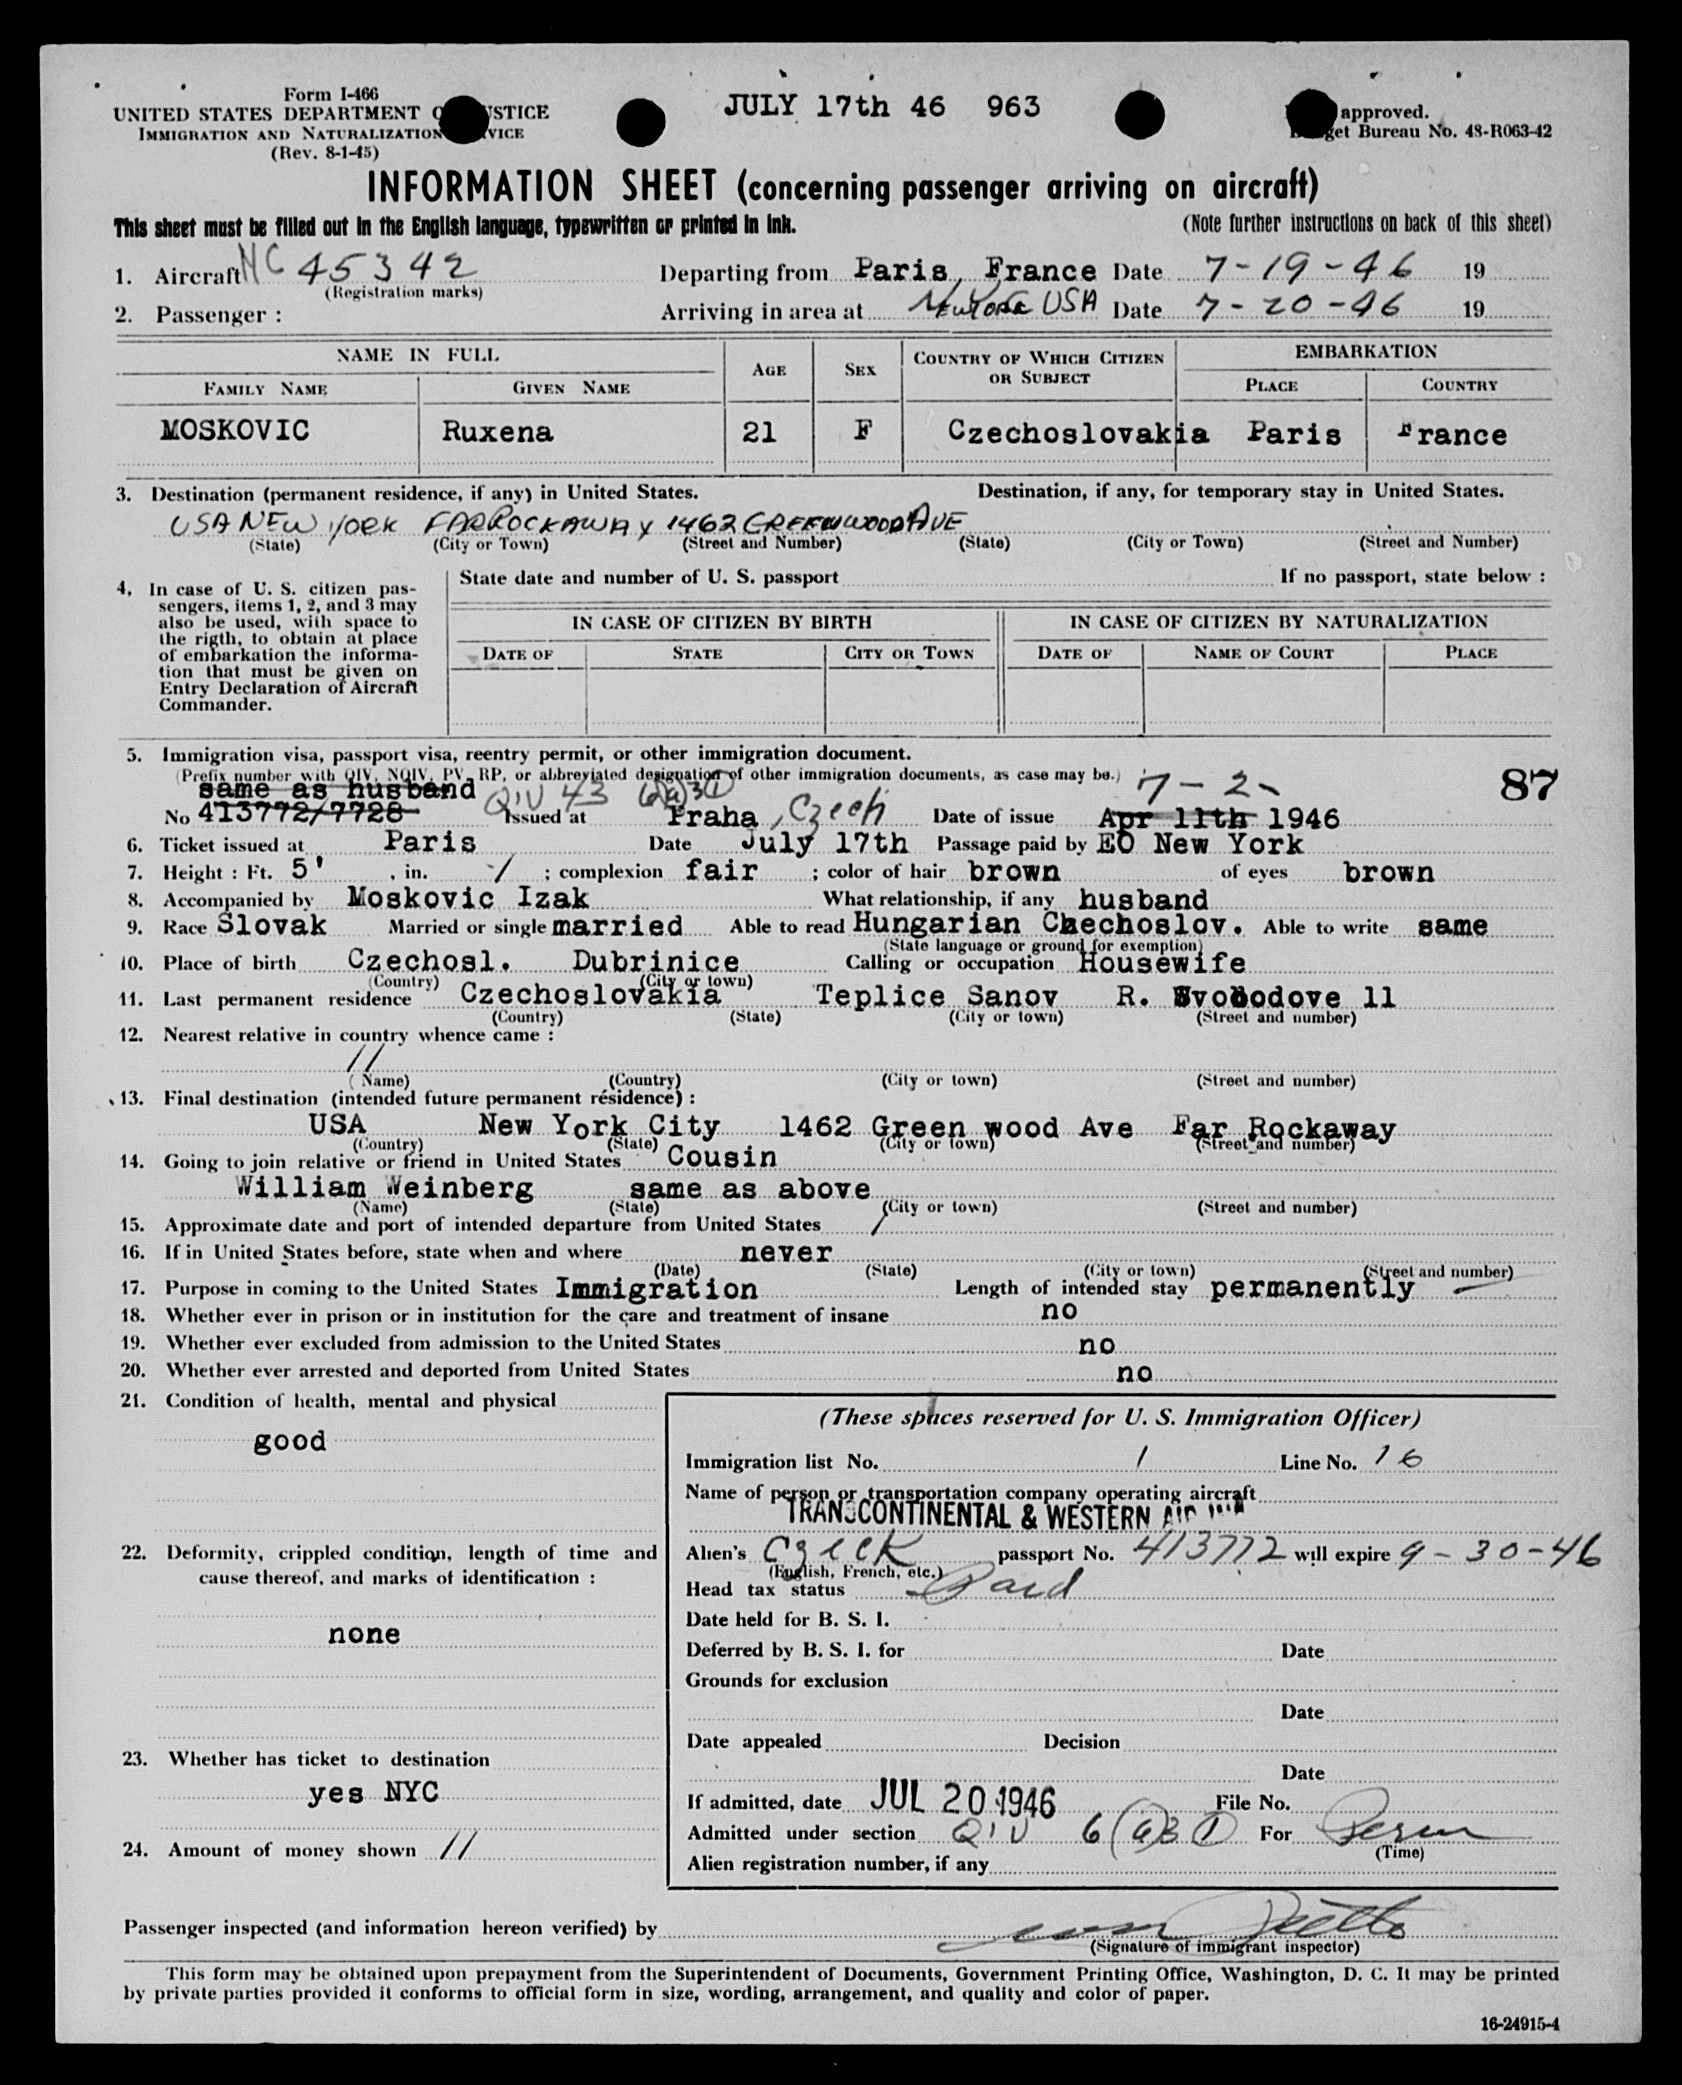 Form I-466
UNITED STATES DEPARTMENT O STICE
IMMIGRATION AND NATURALIZATION VICE
(Rev. 8-1-45)
JULY 17th 46 963
approved.
get Bureau No. 48-R063-42
INFORMATION SHEET (concerning passenger arriving on aircraft)
This sheet must be filled out in the English language, typewritten or printed in ink. (Note further instructions on back of this sheet)
1. Aircraft NC 45342 Departing from Paris, France Date 7-19-46 19
(Registration marks)
2. Passenger : Arriving in area at New York USA Date 7-20-46 19
NAME IN FULL AGE SEX COUNTRY OF WHICH CITIZEN OR SUBJECT EMBARKATION
FAMILY NAME GIVEN NAME PLACE COUNTRY
MOSKOVIC Ruxena 21 F Czechoslovakia Paris France
3. Destination (permanent residence, if any) in United States. Destination, if any, for temporary stay in United States.
USA NEW YORK FARROCKAWAY 1462 GREENWOOD AVE
(State) (City or Town) (Street and Number) (State) (City or Town) (Street and Number)
4, In case of U. S. citizen pas-
sengers, items 1, 2, and 3 may
also be used, with space to
the rigth, to obtain at place
of embarkation the informa-
tion that must be given on
Entry Declaration of Aircraft
Commander.
State date and number of U. S. passport If no passport, state below :
IN CASE OF CITIZEN BY BIRTH IN CASE OF CITIZEN BY NATURALIZATION
DATE OF STATE CITY OR TOWN DATE OF NAME OF COURT PLACE
5. Immigration visa, passport visa, reentry permit, or other immigration document.
(Prefix number with QIV, NQIV, PV, RP, or abbreviated designation of other immigration documents, as case may be.)
same as husband QIV 43 6(a)3(1) 7-2- 87
No 413772/7728 Issued at Praha, Czech Date of issue Apr 11th 1946
6. Ticket issued at Paris Date July 17th Passage paid by EO New York
7. Height : Ft. 5' , in. / ; complexion fair ; color of hair brown of eyes brown
8. Accompanied by Moskovic Izak What relationship, if any husband
9. Race Slovak Married or single married Able to read Hungarian Czechoslov. Able to write same
(State language or ground for exemption)
10. Place of birth Czechosl. Dubrinice Calling or occupation Housewife
(Country) (City or town)
11. Last permanent residence Czechoslovakia Teplice Sanov R. Svobodove 11
(Country) (State) (City or town) (Street and number)
12. Nearest relative in country whence came :
//
(Name) (Country) (City or town) (Street and number)
13. Final destination (intended future permanent résidence) :
USA New York City 1462 Green wood Ave Far Rockaway
(Country) (State) (City or town) (Street and number)
14. Going to join relative or friend in United States Cousin
William Weinberg same as above
(Name) (State) (City or town) (Street and number)
15. Approximate date and port of intended departure from United States /
16. If in United States before, state when and where never
(Date) (State) (City or town) (Street and number)
17. Purpose in coming to the United States Immigration Length of intended stay permanently
18. Whether ever in prison or in institution for the care and treatment of insane no
19. Whether ever excluded from admission to the United States no
20. Whether ever arrested and deported from United States no
21. Condition of health, mental and physical
good
22. Deformity, crippled condition, length of time and
cause thereof, and marks of identification :
none
23. Whether has ticket to destination
yes NYC
24. Amount of money shown //
(These spaces reserved for U. S. Immigration Officer)
Immigration list No. 1 Line No. 16
Name of person or transportation company operating aircraft
TRANSCONTINENTAL & WESTERN AIR
Alien's Czeck passport No. 413772 will expire 9-30-46
(English, French, etc.)
Head tax status Paid
Date held for B. S. I.
Deferred by B. S. I. for Date
Grounds for exclusion
Date
Date appealed Decision
Date
If admitted, date JUL 20 1946 File No.
Admitted under section QIV 6(a)3(1) For Perm
(Time)
Alien registration number, if any
Passenger inspected (and information hereon verified) by
(Signature of immigrant inspector)
This form may be obtained upon prepayment from the Superintendent of Documents, Government Printing Office, Washington, D. C. It may be printed
by private parties provided it conforms to official form in size, wording, arrangement, and quality and color of paper.
16-24915-4